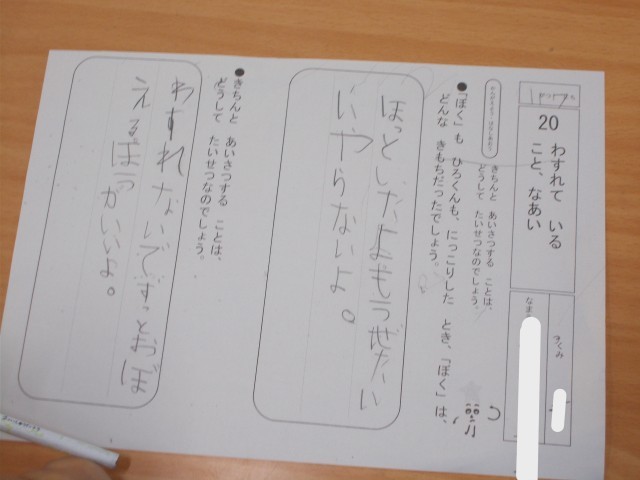 20 わすれて いる
こと、なあい
きちんと あいさつする ことは、
どうして たいせつなのでしょう。
●「ぼく」も ひろくんも、にっこりした とき、「ぼく」は、
どんな きもちだったでしょう。
ほっとしたよもうぜたい
いやらないよ。
●きちんと あいさつする ことは、
どうして たいせつなのでしょう。
わすれないでずっとおぼ
えるほうがいいよ。